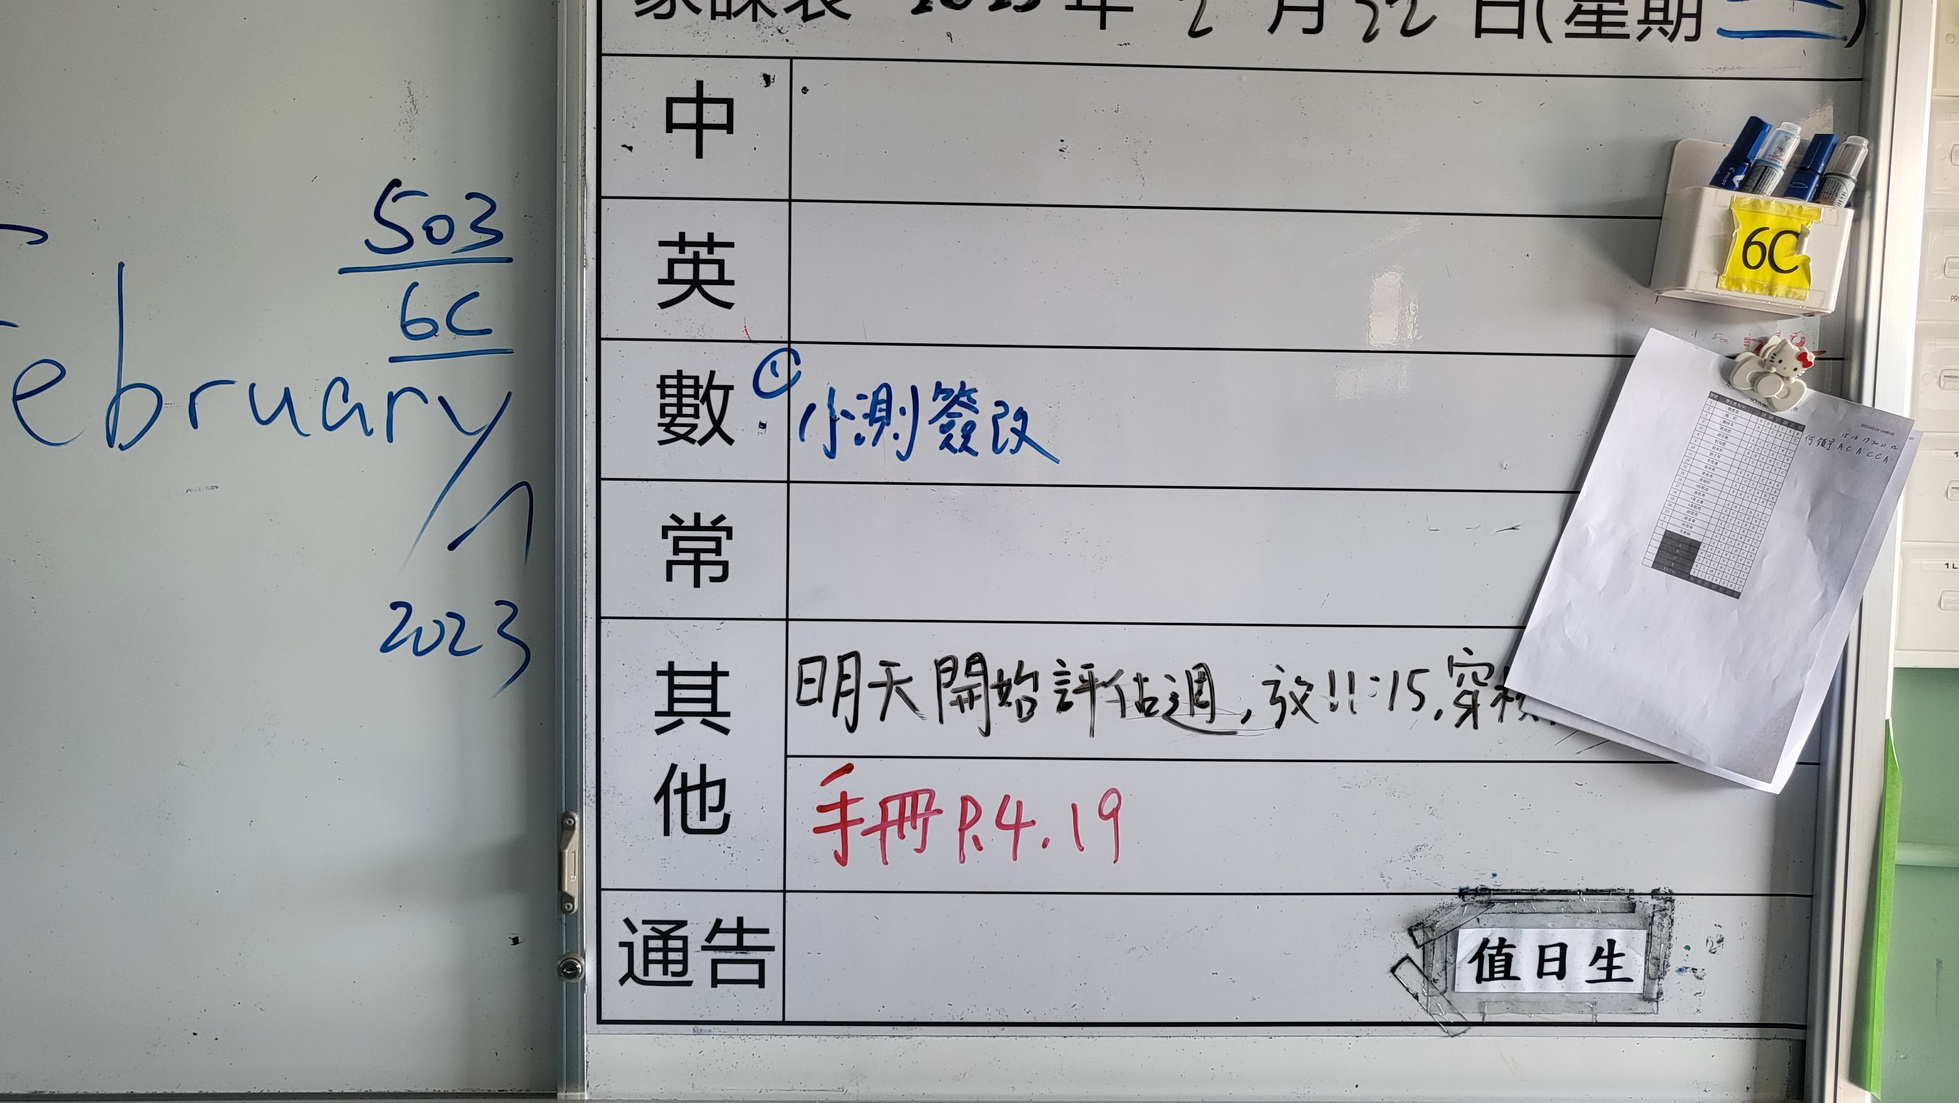 503
6C
February
2023
家課表 2023年2月22日(星期三)
中
英
數 ① 小測簽改
常
其他
明天開始評估週,放11:15,穿校
手冊P.4.19
通告
值日生
6C